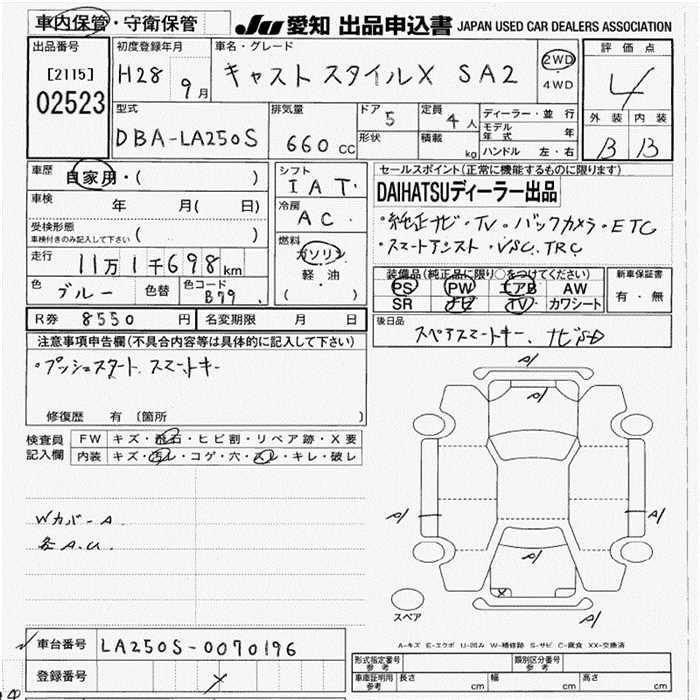 車内保管・守衛保管 JU 愛知 出品申込書 JAPAN USED CAR DEALERS ASSOCIATION
出品番号 [2115] 02523
初度登録年月 H28 9月
車名・グレード キャスト スタイルX SA2
2WD・4WD
評価点 4
外装 内装
B B
型式 DBA-LA250S
排気量 660cc
ドア 5
形状
定員 4人
積載 kg
ディーラー・並行
モデル年式 年
ハンドル 左・右
車歴 自家用・( )
車検 年 月( 日)
受検形態 車検付きのみ記入して下さい ( )
走行 11万1千698km
色 ブルー 色替 色コード B79
シフト IAT
冷房 AC
燃料 ガソリン・軽・油 ( )
セールスポイント(正常に機能するものに限ります)
DAIHATSUディーラー出品
・純正ナビ・TV・バックカメラ・ETC
・スマートアシスト・VSC.TRC
装備品(純正品に限り○をつけてください)
PS PW エアB AW
SR ナビ TV カワシート
新車保証書
有・無
R券 8550円 名変期限 月 日
後日品 スペアスマートキー、ナビSD
注意事項申告欄(不具合内容等は具体的に記入して下さい)
・プッシュスタート スマートキー
修復歴 有 〔箇所 〕
検査員記入欄
FW キズ・飛石・ヒビ割・リペア跡・X要
内装 キズ・汚レ・コゲ・穴・スレ・キレ・破レ
Wカバ-A
各A.U.
A1
A1
A1
A1
A1
A1
X
スペア
A-キズ E-エクボ U-凹み W-補修跡 S-サビ C-腐食 XX-交換済
車台番号 LA250S-0070196
登録番号
形式指定番号 参考
類別区分番号 参考
車庫証明用 参考 長さ cm 幅 cm 高さ cm